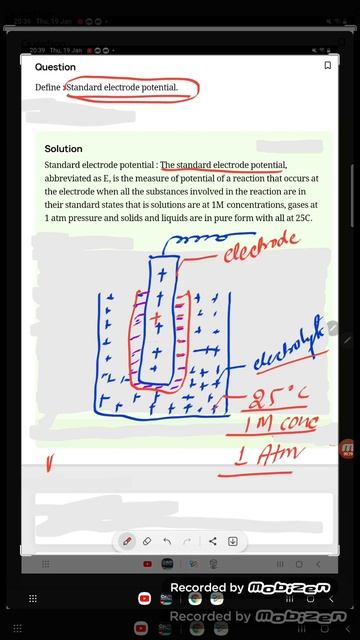 20:39 Thu, 19 Jan
20:39 Thu, 19 Jan
Question
Define :Standard electrode potential.
Solution
Standard electrode potential : The standard electrode potential,
abbreviated as E, is the measure of potential of a reaction that occurs at
the electrode when all the substances involved in the reaction are in
their standard states that is solutions are at 1M concentrations, gases at
1 atm pressure and solids and liquids are in pure form with all at 25C.
electrode
electrolyte
25°C
1M conc
1 Atm
Recorded by Mobizen
Recorded by Mobizen